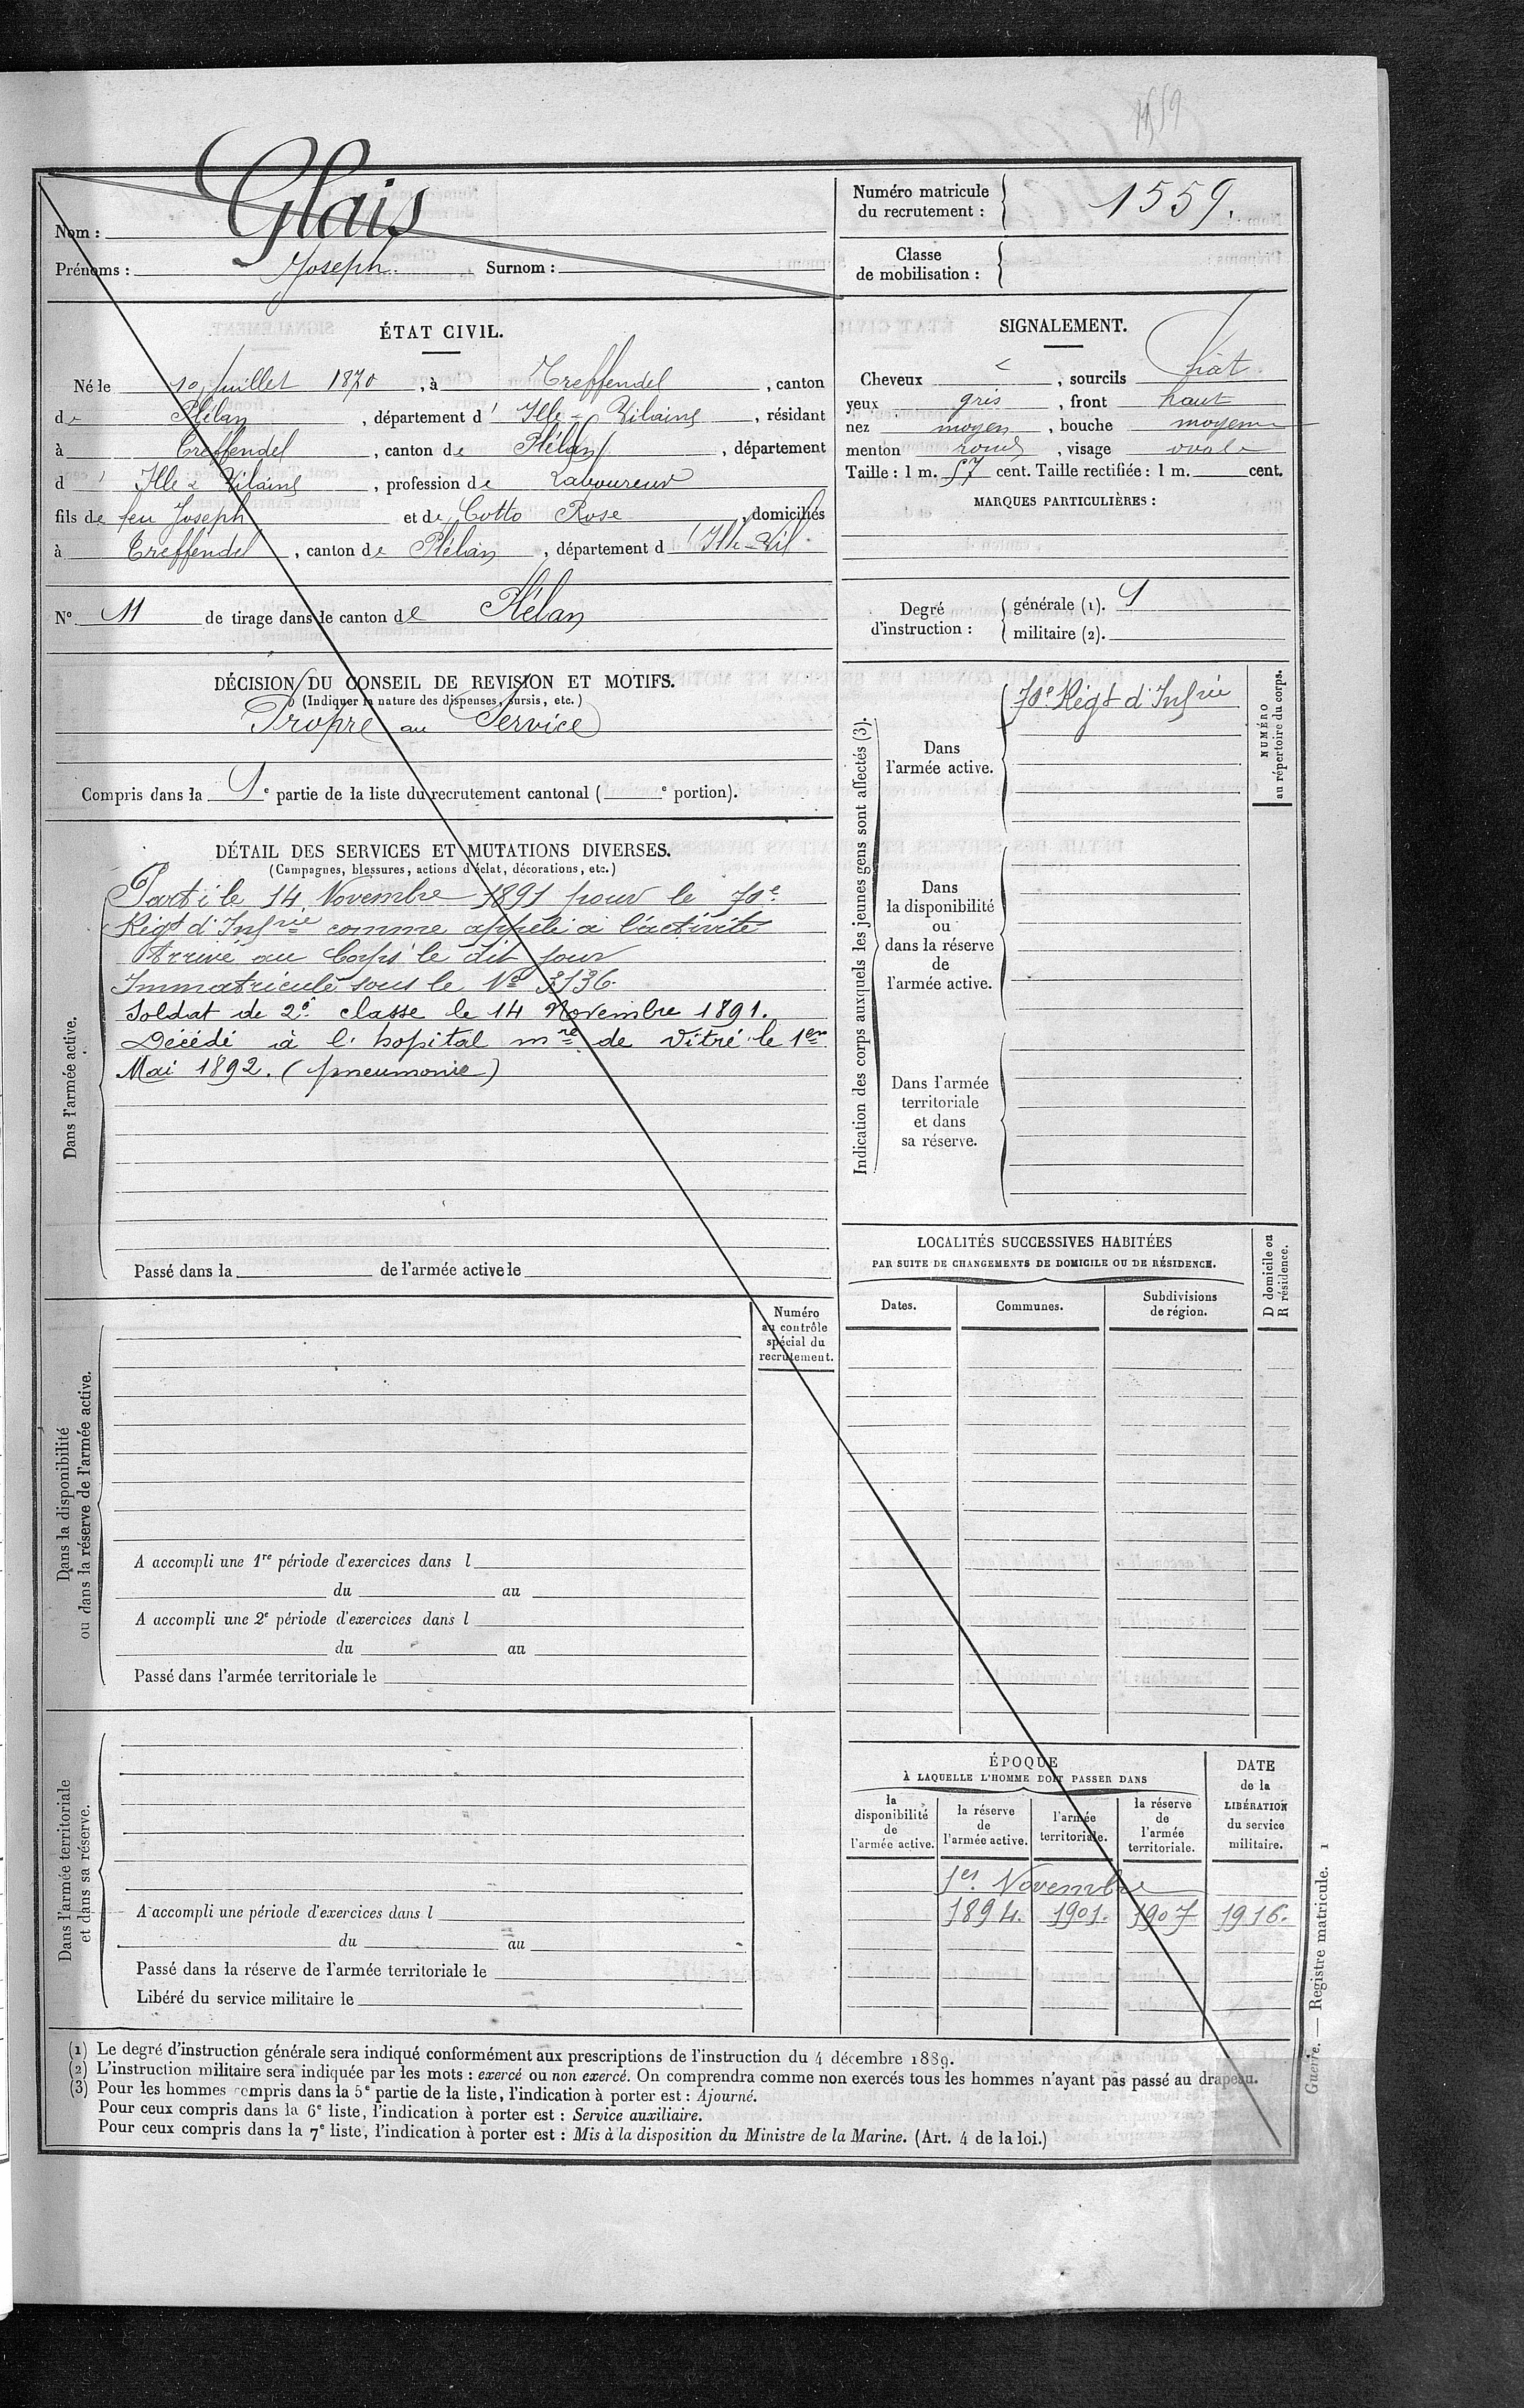 1559
Nom : Glais
Prénoms : Joseph. Surnom :
Numéro matricule du recrutement : 1559.
Classe de mobilisation :
ÉTAT CIVIL.
Né le 10 Juillet 1870, à Treffendel, canton
de Plélan, département d' Ille-&-Vilaine, résidant
à Treffendel, canton de Plélan, département
d' Ille & Vilaine, profession de Laboureur
fils de feu Joseph et de Cotto Rose, domiciliés
à Treffendel, canton de Plélan, département d' Ille-Vil
N° 11 de tirage dans le canton de Plélan
SIGNALEMENT.
Cheveux, sourcils chat.
yeux gris, front haut
nez moyen, bouche moyenne
menton rond, visage ovale
Taille : 1 m. 57 cent. Taille rectifiée : 1 m. cent.
MARQUES PARTICULIÈRES :
Degré d'instruction : générale (1). 
militaire (2).
DÉCISION DU CONSEIL DE REVISION ET MOTIFS.
(Indiquer la nature des dispenses, sursis, etc.)
Propre au Service
Compris dans la 1e partie de la liste du recrutement cantonal ( e portion).
DÉTAIL DES SERVICES ET MUTATIONS DIVERSES.
(Campagnes, blessures, actions d'éclat, décorations, etc.)
Dans l'armée active.
Parti le 14 Novembre 1891 pour le 70e
Régt d'Infrie comme appelé à l'activité
Arrivé au Corps le dit jour
Immatriculé sous le No 3136.
Soldat de 2e classe le 14 Novembre 1891.
Décédé à l'hopital mre de Vitré le 1er
Mai 1892. (pneumonie)
Passé dans la de l'armée active le
Indication des corps auxquels les jeunes gens sont affectés (3).
Dans
l'armée active.
70e Régt d'Infrie
NUMÉRO
au répertoire du corps.
Dans
la disponibilité
ou
dans la réserve
de
l'armée active.
Dans l'armée
territoriale
et dans
sa réserve.
LOCALITÉS SUCCESSIVES HABITÉES
PAR SUITE DE CHANGEMENTS DE DOMICILE OU DE RÉSIDENCE.
D domicile ou
R résidence.
Dates.
Communes.
Subdivisions
de région.
Dans la disponibilité
ou dans la réserve de l'armée active.
Numéro
au contrôle
spécial du
recrutement.
A accompli une 1re période d'exercices dans l
du au
A accompli une 2e période d'exercices dans l
du au
Passé dans l'armée territoriale le
Dans l'armée territoriale
et dans sa réserve.
A accompli une période d'exercices dans l
du au
Passé dans la réserve de l'armée territoriale le
Libéré du service militaire le
ÉPOQUE
À LAQUELLE L'HOMME DOIT PASSER DANS
la
disponibilité
de
l'armée active.
la réserve
de
l'armée active.
l'armée
territoriale.
la réserve
de
l'armée
territoriale.
DATE
de la
LIBÉRATION
du service
militaire.
1er Novembre
1894. 1901. 1907 1916.
Guerre. — Registre matricule. 1
(1) Le degré d'instruction générale sera indiqué conformément aux prescriptions de l'instruction du 4 décembre 1889.
(2) L'instruction militaire sera indiquée par les mots : exercé ou non exercé. On comprendra comme non exercés tous les hommes n'ayant pas passé au drapeau.
(3) Pour les hommes compris dans la 5e partie de la liste, l'indication à porter est : Ajourné.
Pour ceux compris dans la 6e liste, l'indication à porter est : Service auxiliaire.
Pour ceux compris dans la 7e liste, l'indication à porter est : Mis à la disposition du Ministre de la Marine. (Art. 4 de la loi.)